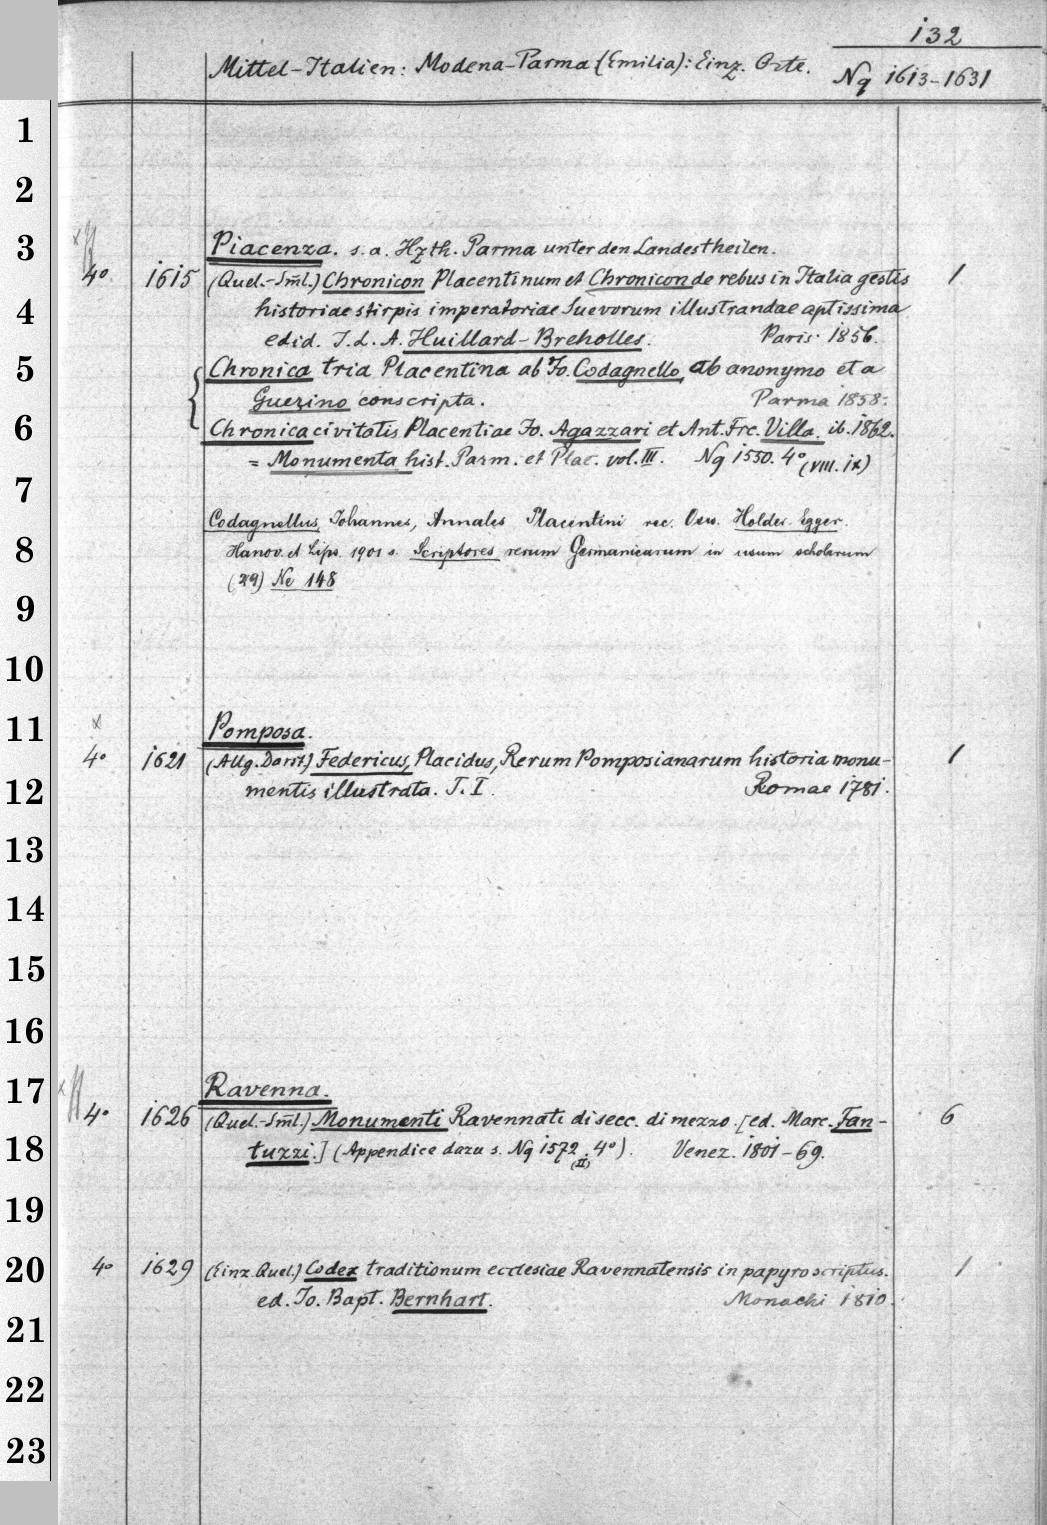 132
Mittel-Italien: Modena-Parma (Emilia): Einz. Orte. Nq 1613-1631
1
2
3 Piacenza. s. a. Hzth. Parma unter den Landestheilen.
4° 1615 (Quel.-Sml.) Chronicon Placentinum et Chronicon de rebus in Italia gestis 1
4 historiae stirpis imperatoriae Suevorum illustrandae aptissima
edid. J. L. A. Huillard-Breholles. Paris 1856.
5 Chronica tria Placentina ab Jo. Codagnello, ab anonymo et a
Guerino conscripta. Parma 1858.
6 Chronica civitatis Placentiae Jo. Agazzari et Ant. Frc. Villa. ib. 1862.
= Monumenta hist. Parm. et Plac. vol. III. Nq 1550. 4° (VIII. IX)
7
Codagnellus, Johannes, Annales Placentini rec. Osw. Holder-Egger.
8 Hanov. et Lips. 1901 s. Scriptores rerum Germanicarum in usum scholarum
(29) Ne 148
9
10
11 Pomposa.
4° 1621 (Allg. Darst.) Federicus, Placidus, Rerum Pomposianarum historia monu- 1
12 mentis illustrata. T. I. Romae 1781.
13
14
15
16
17 Ravenna.
4° 1626 (Quel.-Sml.) Monumenti Ravennati di secc. di mezzo. [ed. Marc. Fan- 6
18 tuzzi.] (Appendice dazu s. Nq 1572. 4°). Venez. 1801-69.
(II)
19
20 4° 1629 (Einz. Quel.) Codex traditionum ecclesiae Ravennatensis in papyro scriptus. 1
ed. Jo. Bapt. Bernhart. Monachi 1810.
21
22
23